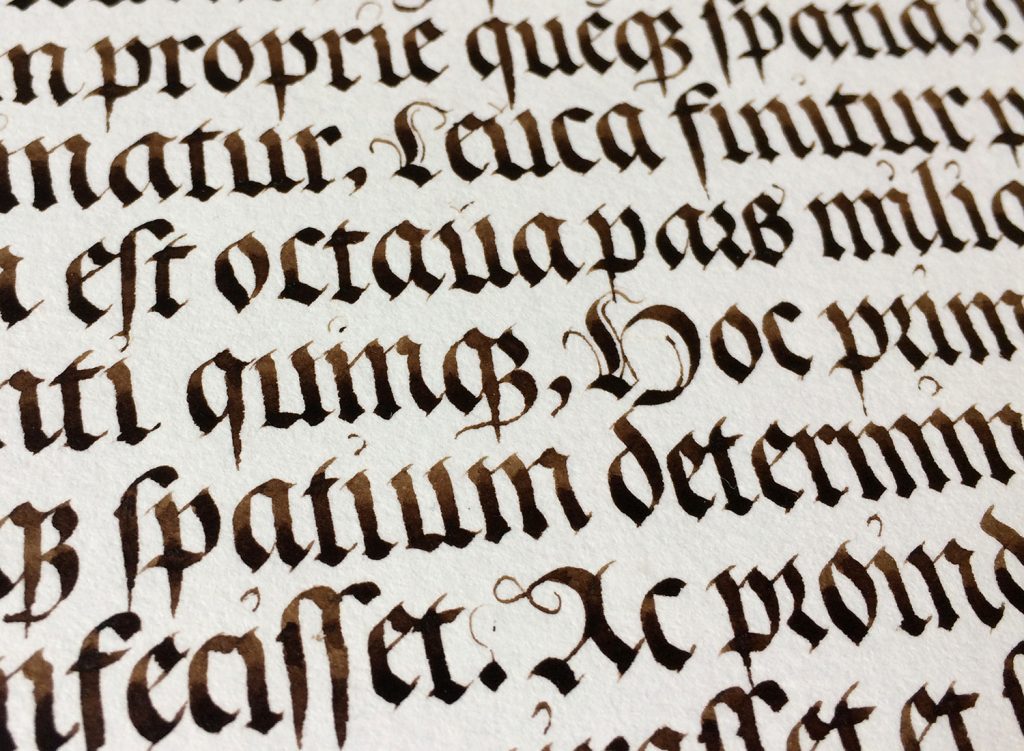 n proprie queqꝫ ſpatia,
natur, Leuca finitur p
eſt octaua pars milia
nti quinqꝫ, Hoc prim
qꝫ ſpatium determin
nfeciſſet. Ac proind
aſſet et